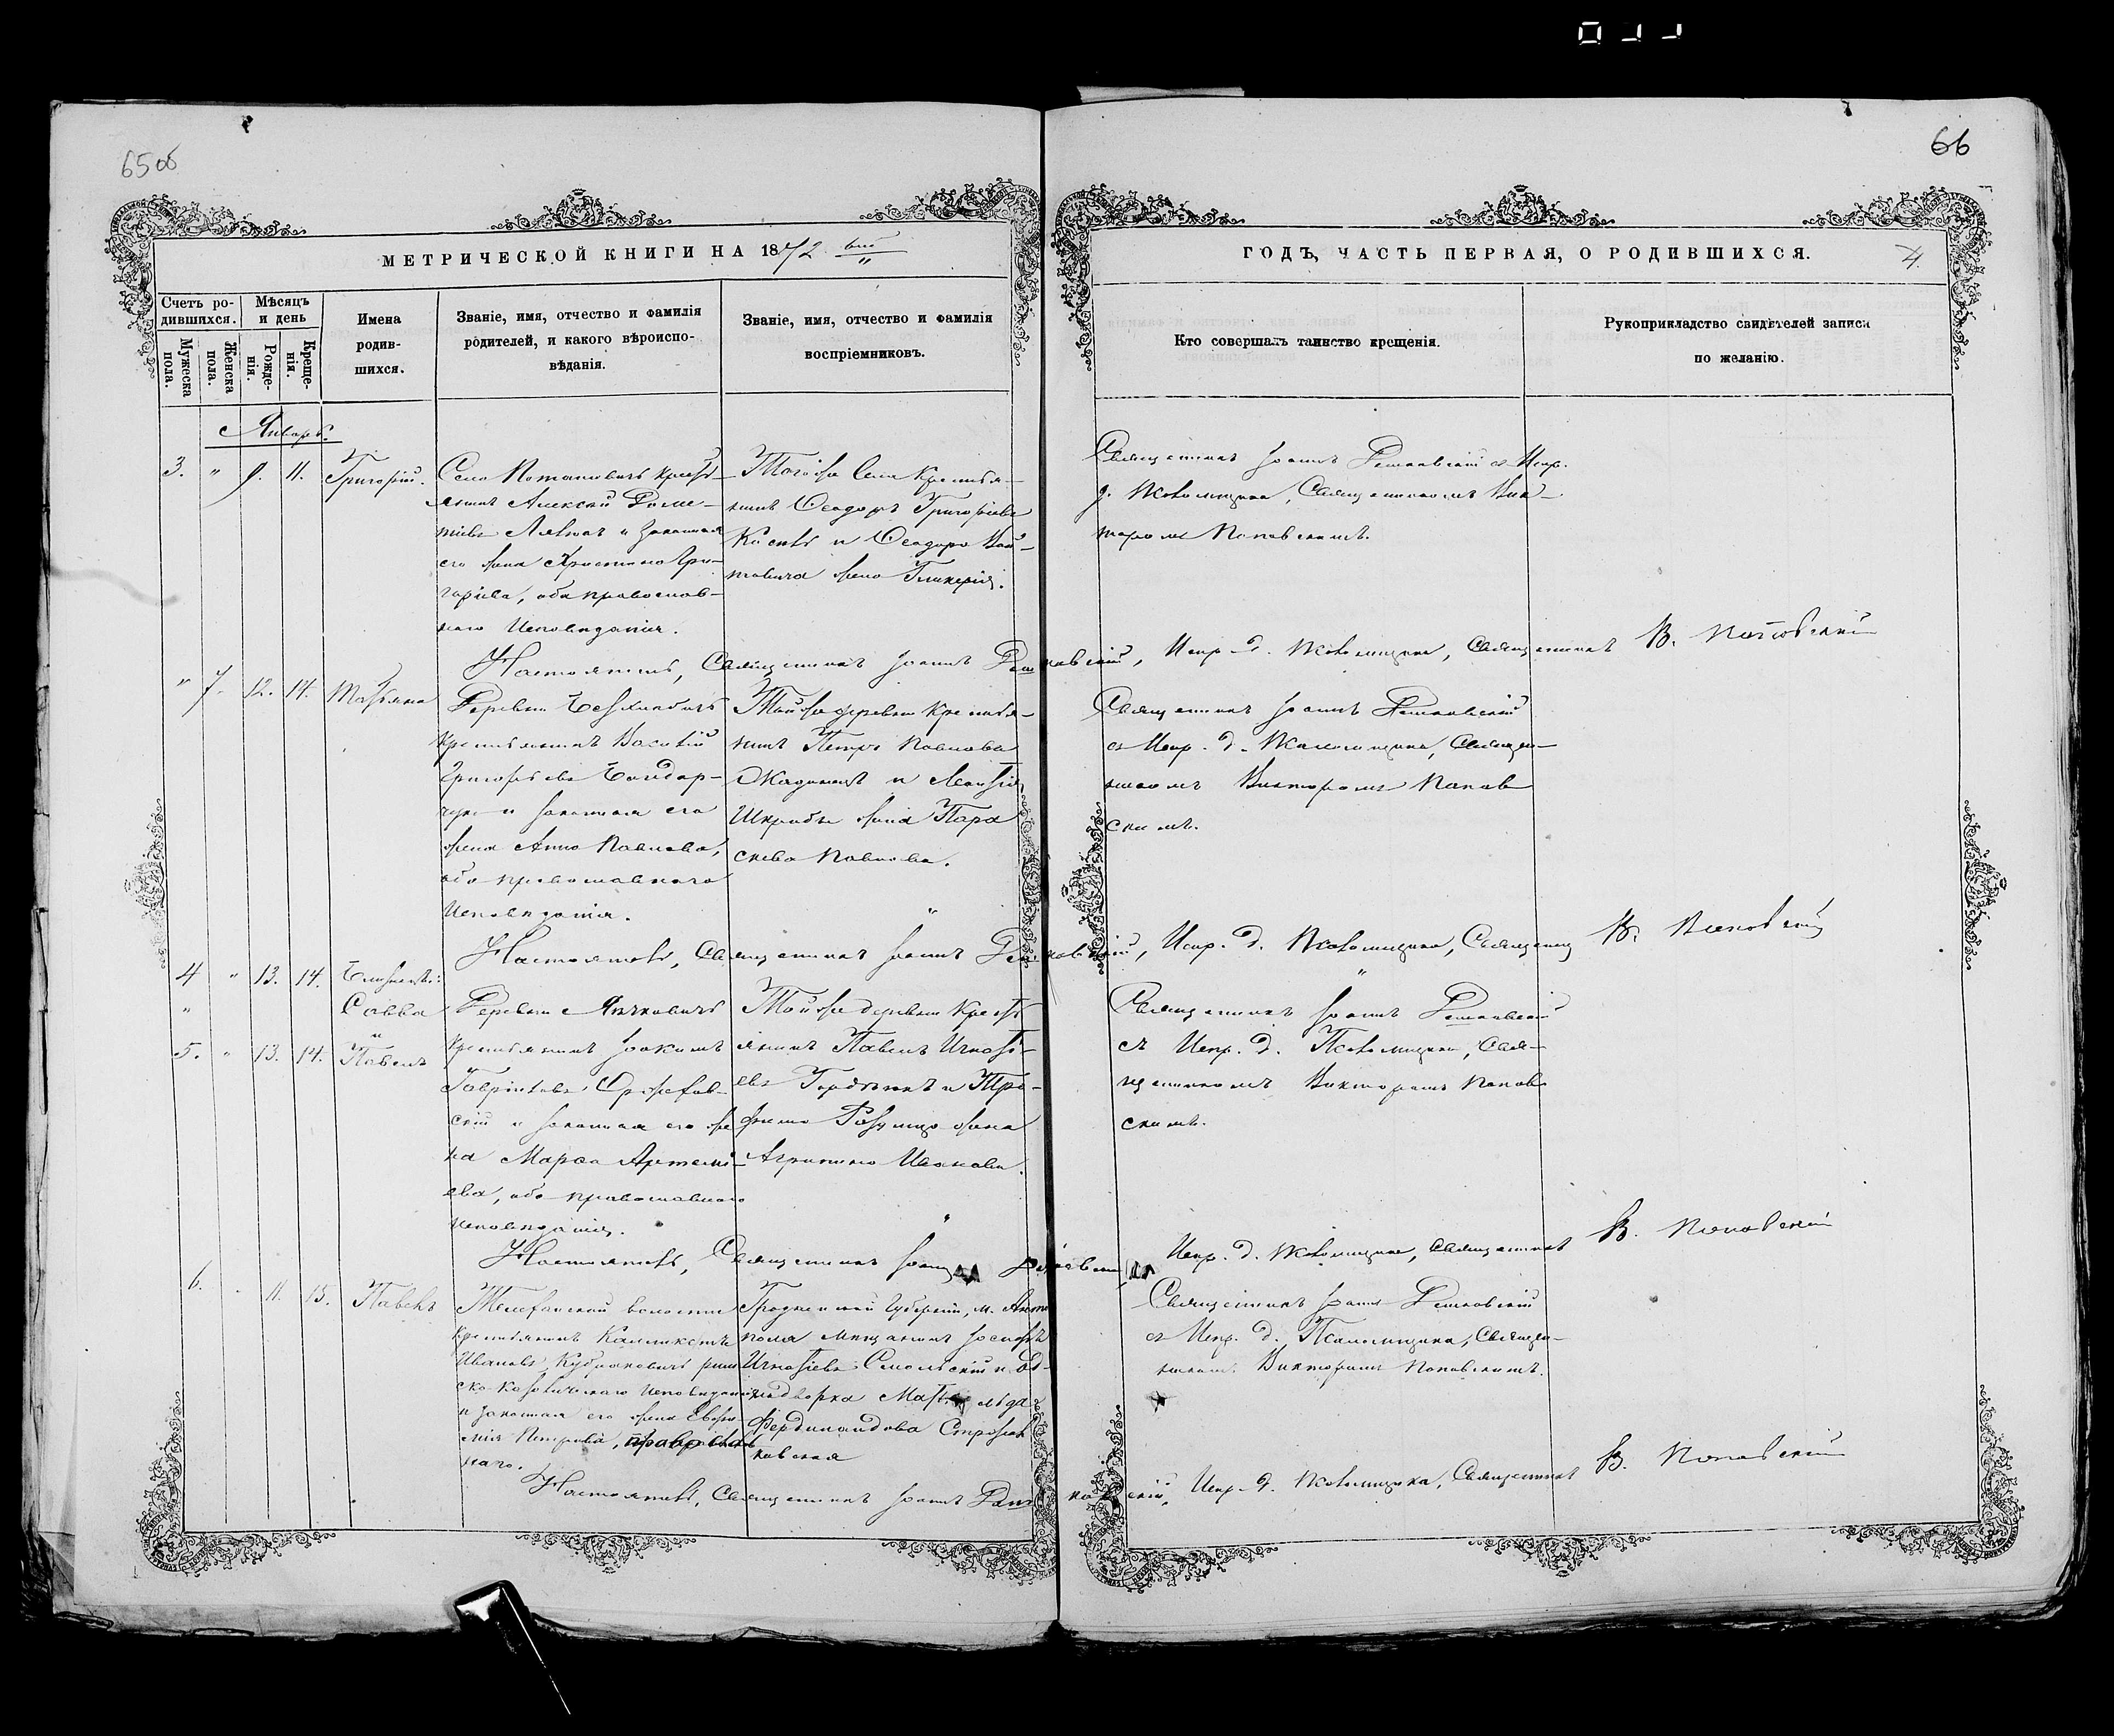 65об
66
МЕТРИЧЕСКОЙ КНИГИ НА 1872 ГОДЪ, ЧАСТЬ ПЕРВАЯ, О РОДИВШИХСЯ.
4.
Счетъ ро-
дившихся.
Мужеска
пола.
Женска
пола.
Мѣсяцъ
и день
Рожде-
нія.
Креще-
нія.
Имена
родив-
шихся.
Званіе, имя, отчество и фамилія
родителей, и какого вѣроиспо-
вѣданія.
Званіе, имя, отчество и фамилія
воспріемниковъ.
Кто совершалъ таинство крещенія.
Рукоприкладство свидѣтелей записи
по желанію.
Январь.
3. " 9. 11. Григорій.
Село Потаповичъ кресть-
янинъ Алексѣй
и законная
его жена Христина Гри-
горіева, оба православ-
наго Исповѣданія.
Того же Села Крестья-
нинъ Ѳеодоръ Григоріевъ
и Ѳеодора Вой-
товича жена Гликерія.
Священникъ Іоаннъ съ Испр.
д. Псаломщика, Священникомъ Вик-
торомъ Поповскимъ.
Настоятель, Священникъ Іоаннъ
Испр. д. Псаломщика, Священникъ В. Поповскій
" 7. 12. 14. Татіяна
Деревни
крестьянинъ Василій
Григорьевъ Бондар-
чукъ и законная его
жена Анна Павлова,
оба православнаго
Исповѣданія.
Той же деревни Крестья-
нинъ Петръ Павловъ
и
жена Пара
скева Павлова.
"
Священникъ Іоаннъ
съ Испр. д. Псаломщика, Священ-
никомъ Викторомъ Попов
скимъ.
Настоятель, Священникъ Іоаннъ
Испр. д. Псаломщика, Священникъ В. Поповскій
4 " 13. 14. Близнецы:
" Савва
и
5. " 13. 14. Павелъ
Деревни
крестьянинъ Іоакимъ
Гавріиловъ
скій и законная его же
на Марѳа Артемі-
ева, оба православнаго
исповѣданія.
Той же деревни Кресть
янинъ Павелъ Игнать-
евъ и Тро-
фима жена
Агрипина Иванова.
"
Священникъ Іоаннъ
съ Испр. д. Псаломщика, Свя-
щенникомъ Викторомъ Попов
скимъ.
Настоятель, Священникъ Іоаннъ
Испр. д. Псаломщика, Священникъ В. Поповскій
6. 11. 15. Павелъ
Телеханской волости
крестьянинъ Калликстъ
Ивановъ Кубраковичъ рим
ско-католическаго исповѣданія
и законная его жена Евфи-
мія Петрова, православ
наго.
Гродненской Губерніи, м. Анто
поля мѣщанинъ Іосифъ
Игнатіевъ и од-
нодворка
Фердинандова
ковская
Священникъ Іоаннъ
съ Испр. д. Псаломщика, Священ-
никомъ Викторомъ Поповскимъ.
Настоятель, Священникъ Іоаннъ
Испр. д. Псаломщика, Священникъ В. Поповскій